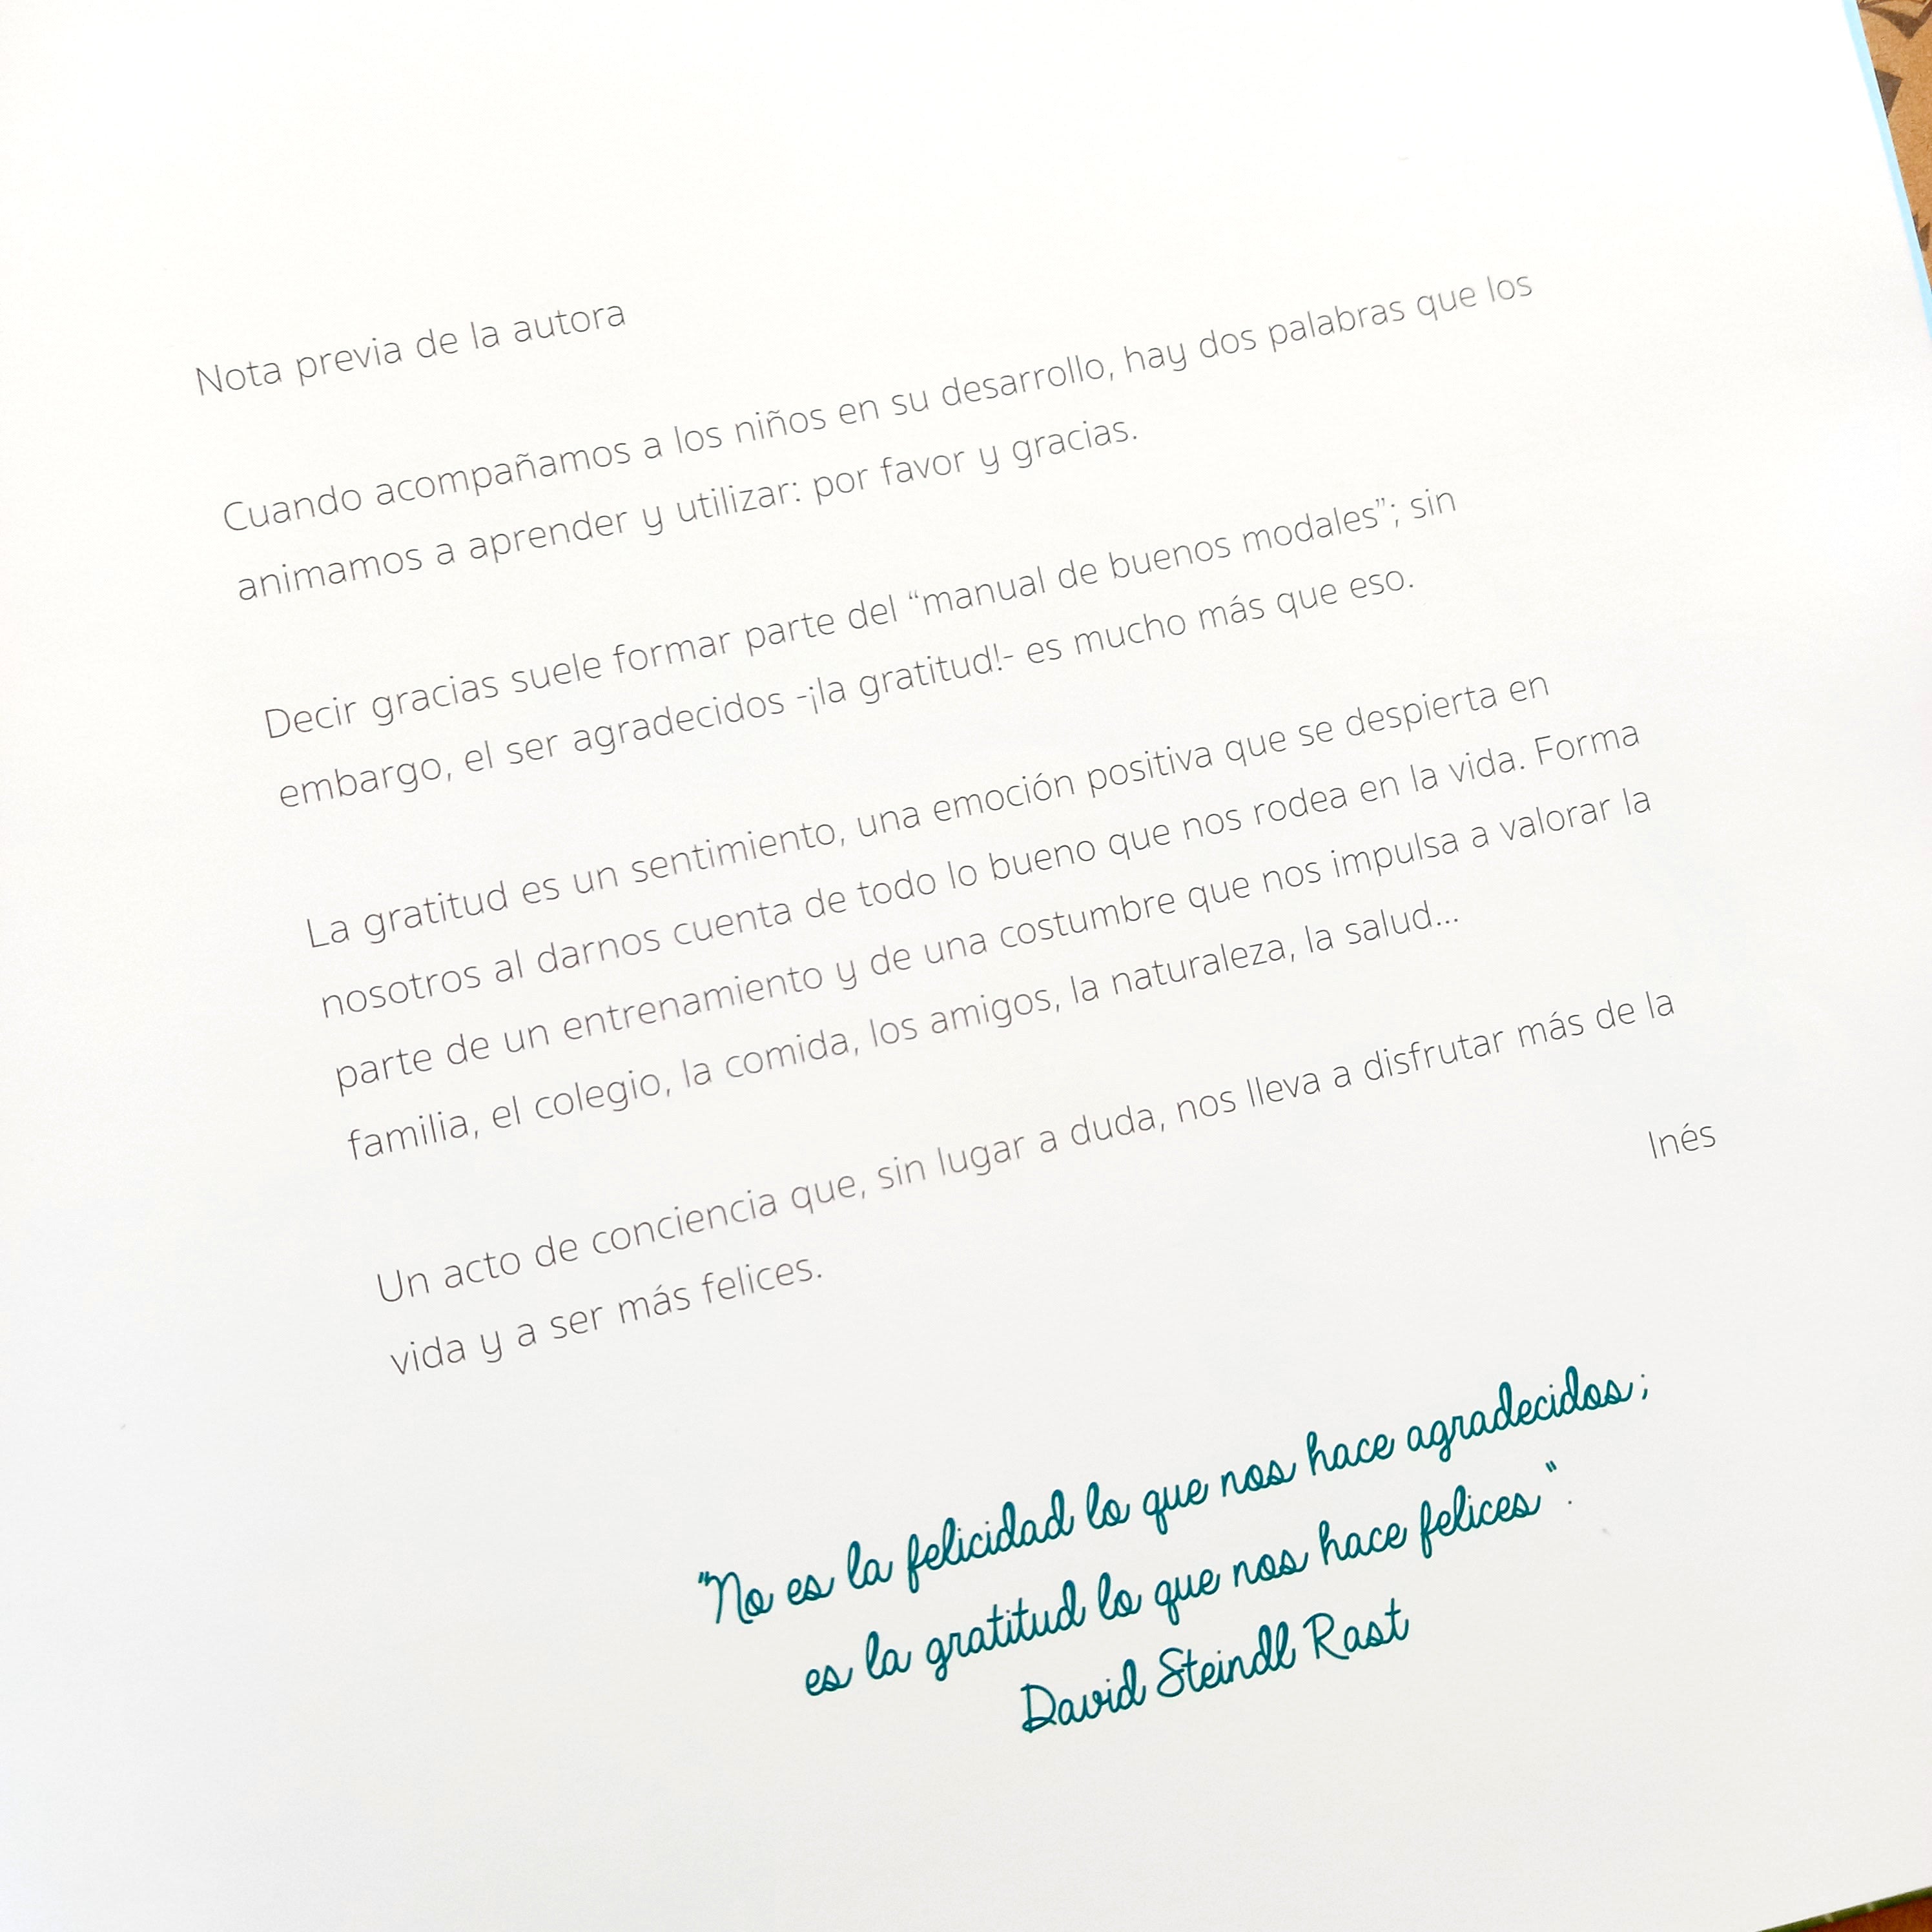 Nota previa de la autora
Cuando acompañamos a los niños en su desarrollo, hay dos palabras que los
animamos a aprender y utilizar: por favor y gracias.
Decir gracias suele formar parte del “manual de buenos modales”; sin
embargo, el ser agradecidos -¡la gratitud!- es mucho más que eso.
La gratitud es un sentimiento, una emoción positiva que se despierta en
nosotros al darnos cuenta de todo lo bueno que nos rodea en la vida. Forma
parte de un entrenamiento y de una costumbre que nos impulsa a valorar la
familia, el colegio, la comida, los amigos, la naturaleza, la salud...
Un acto de conciencia que, sin lugar a duda, nos lleva a disfrutar más de la
vida y a ser más felices.
Inés
"No es la felicidad lo que nos hace agradecidos;
es la gratitud lo que nos hace felices".
David Steindl Rast